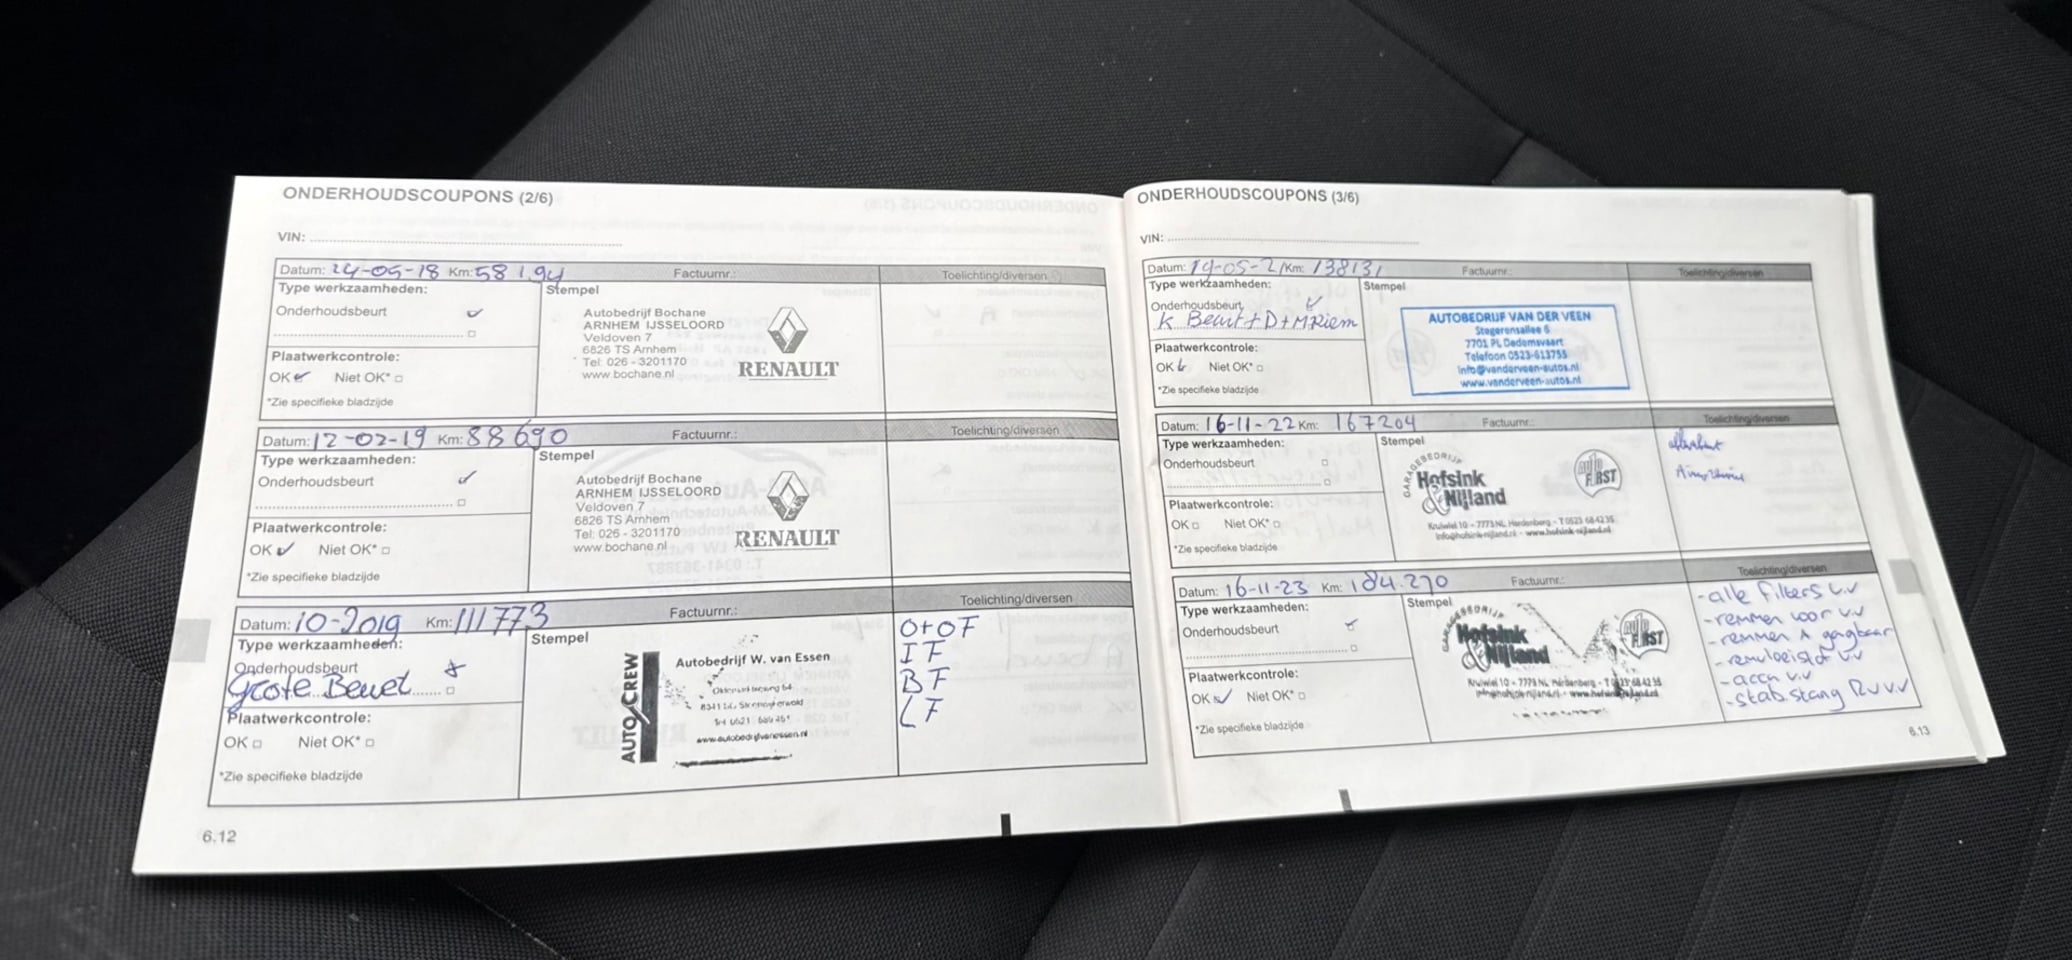 ONDERHOUDSCOUPONS (2/6)
VIN:
Datum: 24-05-18 Km: 58194 Factuurnr.: Toelichting/diversen
Type werkzaamheden: Stempel
Onderhoudsbeurt
Autobedrijf Bochane
ARNHEM IJSSELOORD
Veldoven 7
6826 TS Arnhem
Tel: 026 - 3201170
www.bochane.nl
RENAULT
Plaatwerkcontrole:
OK Niet OK*
*Zie specifieke bladzijde
Datum: 12-02-19 Km: 88690 Factuurnr.: Toelichting/diversen
Type werkzaamheden: Stempel
Onderhoudsbeurt
Autobedrijf Bochane
ARNHEM IJSSELOORD
Veldoven 7
6826 TS Arnhem
Tel: 026 - 3201170
www.bochane.nl
RENAULT
Plaatwerkcontrole:
OK Niet OK*
*Zie specifieke bladzijde
Datum: 10-2019 Km: 111773 Factuurnr.: Toelichting/diversen
Type werkzaamheden: Stempel
Onderhoudsbeurt
Grote Beurt
AUTO CREW
Autobedrijf W. van Essen
www.autobedrijfvanessen.nl
O+OF
IF
BF
LF
Plaatwerkcontrole:
OK Niet OK*
*Zie specifieke bladzijde
6.12
ONDERHOUDSCOUPONS (3/6)
VIN:
Datum: 19-05-21 Km: 138131 Factuurnr.: Toelichting/diversen
Type werkzaamheden: Stempel
Onderhoudsbeurt
K Beurt + D + M Riem
AUTOBEDRIJF VAN DER VEEN
Stegerensallee 6
7701 PL Dedemsvaart
Telefoon 0523-613755
info@vanderveen-autos.nl
www.vanderveen-autos.nl
Plaatwerkcontrole:
OK Niet OK*
*Zie specifieke bladzijde
Datum: 16-11-22 Km: 167204 Factuurnr.: Toelichting/diversen
Type werkzaamheden: Stempel
Onderhoudsbeurt
GARAGEBEDRIJF
Hofsink
& Nijland
AUTO FIRST
Kruiwiel 10 - 7773 NL Hardenberg - T 0523 68 42 35
info@hofsink-nijland.nl - www.hofsink-nijland.nl
Plaatwerkcontrole:
OK Niet OK*
*Zie specifieke bladzijde
Datum: 16-11-23 Km: 184.270 Factuurnr.: Toelichting/diversen
Type werkzaamheden: Stempel
Onderhoudsbeurt
GARAGEBEDRIJF
Hofsink
& Nijland
AUTO FIRST
Kruiwiel 10 - 7773 NL Hardenberg - T 0523 68 42 35
info@hofsink-nijland.nl - www.hofsink-nijland.nl
- alle filters v.v
- remmen voor v.v
- remmen A gangbaar
- remvloeistof v.v
- accu v.v
- stab.stang RV v.v
Plaatwerkcontrole:
OK Niet OK*
*Zie specifieke bladzijde
6.13